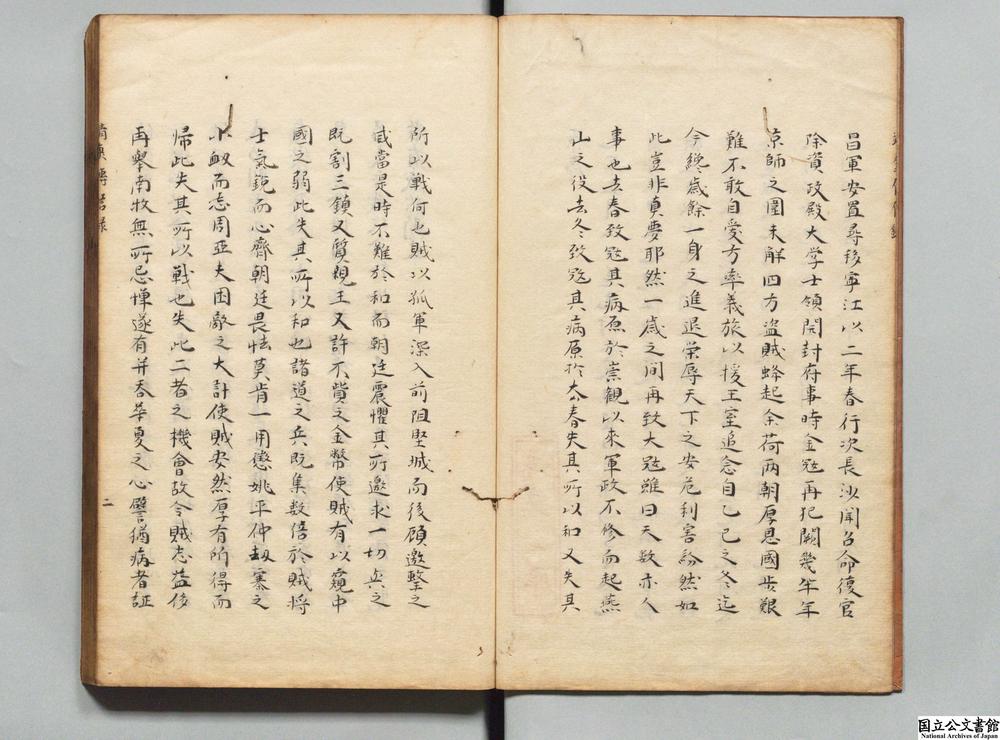 昌軍安置尋移寧江以二年春行次長沙聞召命復官
除資政殿大学士領開封府事時金寇再犯闕幾半年
京師之圍未解四方盗賊蜂起余荷兩朝厚恩國步艱
難不敢自愛方率義旅以援王室追念自乙巳之冬迄
今纔歲餘一身之進退栄辱天下之安危利害紛然如
此豈非真夢耶然一歳之间再致大寇雖曰天数亦人
事也去春致寇其病原於崇観以來軍政不修而起燕
山之役去冬致寇其病原於太春失其所以和又失其
所以戦何也賊以孤軍深入前阻堅城而後顧邀撃之
威當是時不難於和而朝廷震懼其所邀求一切與之
既割三鎮又質親王又許不貲之金幣使賊有以窺中
國之弱此失其所以和也諸道之兵既集数倍於賊将
士氣鋭而心齊朝廷畏怯莫肯一用懲姚平仲刼寨之
小衂而忘周亞夫困敵之大計使賊安然厚有所得而
帰此失其所以戦也失此二者之機會故令賊志益侈
再舉南牧無所忌憚遂有并吞華夏之心譬猶病者証
靖康傳信録
二
国立公文書館
National Archives of Japan